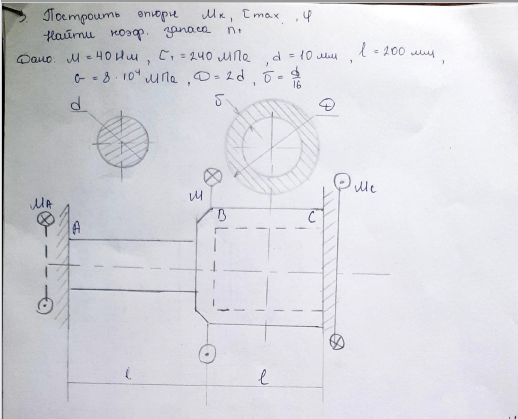 3. Построить эпюры Mк, τmax, φ
Найти коэф. запаса nт
Дано: M = 40 Нм, τт = 240 МПа, d = 10 мм, l = 200 мм,
G = 8 · 10⁴ МПа, D = 2d, δ = d/16
d
δ
D
M
MA
Mc
A
B
C
l
l